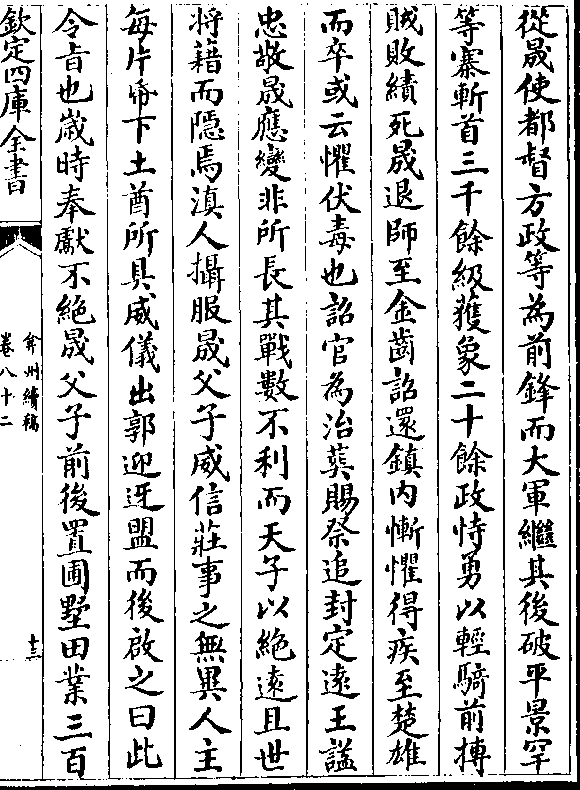 從晟使都督方政等為前鋒而大軍繼其後破平景罕
等寨斬首三千餘級獲象二十餘政恃勇以輕騎前搏
賊敗績死晟退師至金齒詔還鎮内慚懼得疾至楚雄
而卒或云懼伏毒也詔官為治葬賜祭追封定遠王諡
忠敬晟應變非所長其戰數不利而天子以絶遠且世
將藉而隠焉滇人攝服晟父子威信莊事之無異人主
毎片帋下土酋所具威儀出郭迎迓盟而後啟之曰此
令㫖也嵗時奉獻不絶晟父子前後置圃墅田業三百
欽定四庫全書
弇州續稿
卷八十二
十三